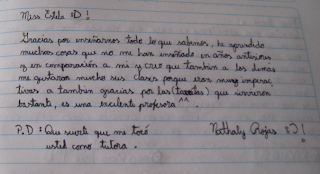 Miss Estela :D !
Gracias por enseñarnos todo lo que sabemos, he aprendido
muchas cosas que no me han enseñado en años anteriores
y en comparación a mi y creo que tambien a los demás
me gustaron mucho sus clases porque eran muy
tivas a tambien gracias por las que
bastante, es una exelente profesora ^^ .
P.D : Que suerte que me tocó Nathaly Rojas :D !
usted como tutora .